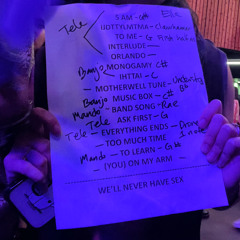 Tele
I AM - G# Elle
UDTTYLMTMA -
TO ME - G
INTERLUDE
ORLANDO -
Banjo MONOGAMY C#
IHTTAI - C
- MOTHERWELL TUNE -
Banjo MUSIC BOX - C#
Mando - BAND SONG -
Tele ASK FIRST - G
Tele - EVERYTHING ENDS - Drone 1 note
- TOO MUCH TIME
Mando - TO LEARN - G#
- (YOU) ON MY ARM -
WE'LL NEVER HAVE SEX